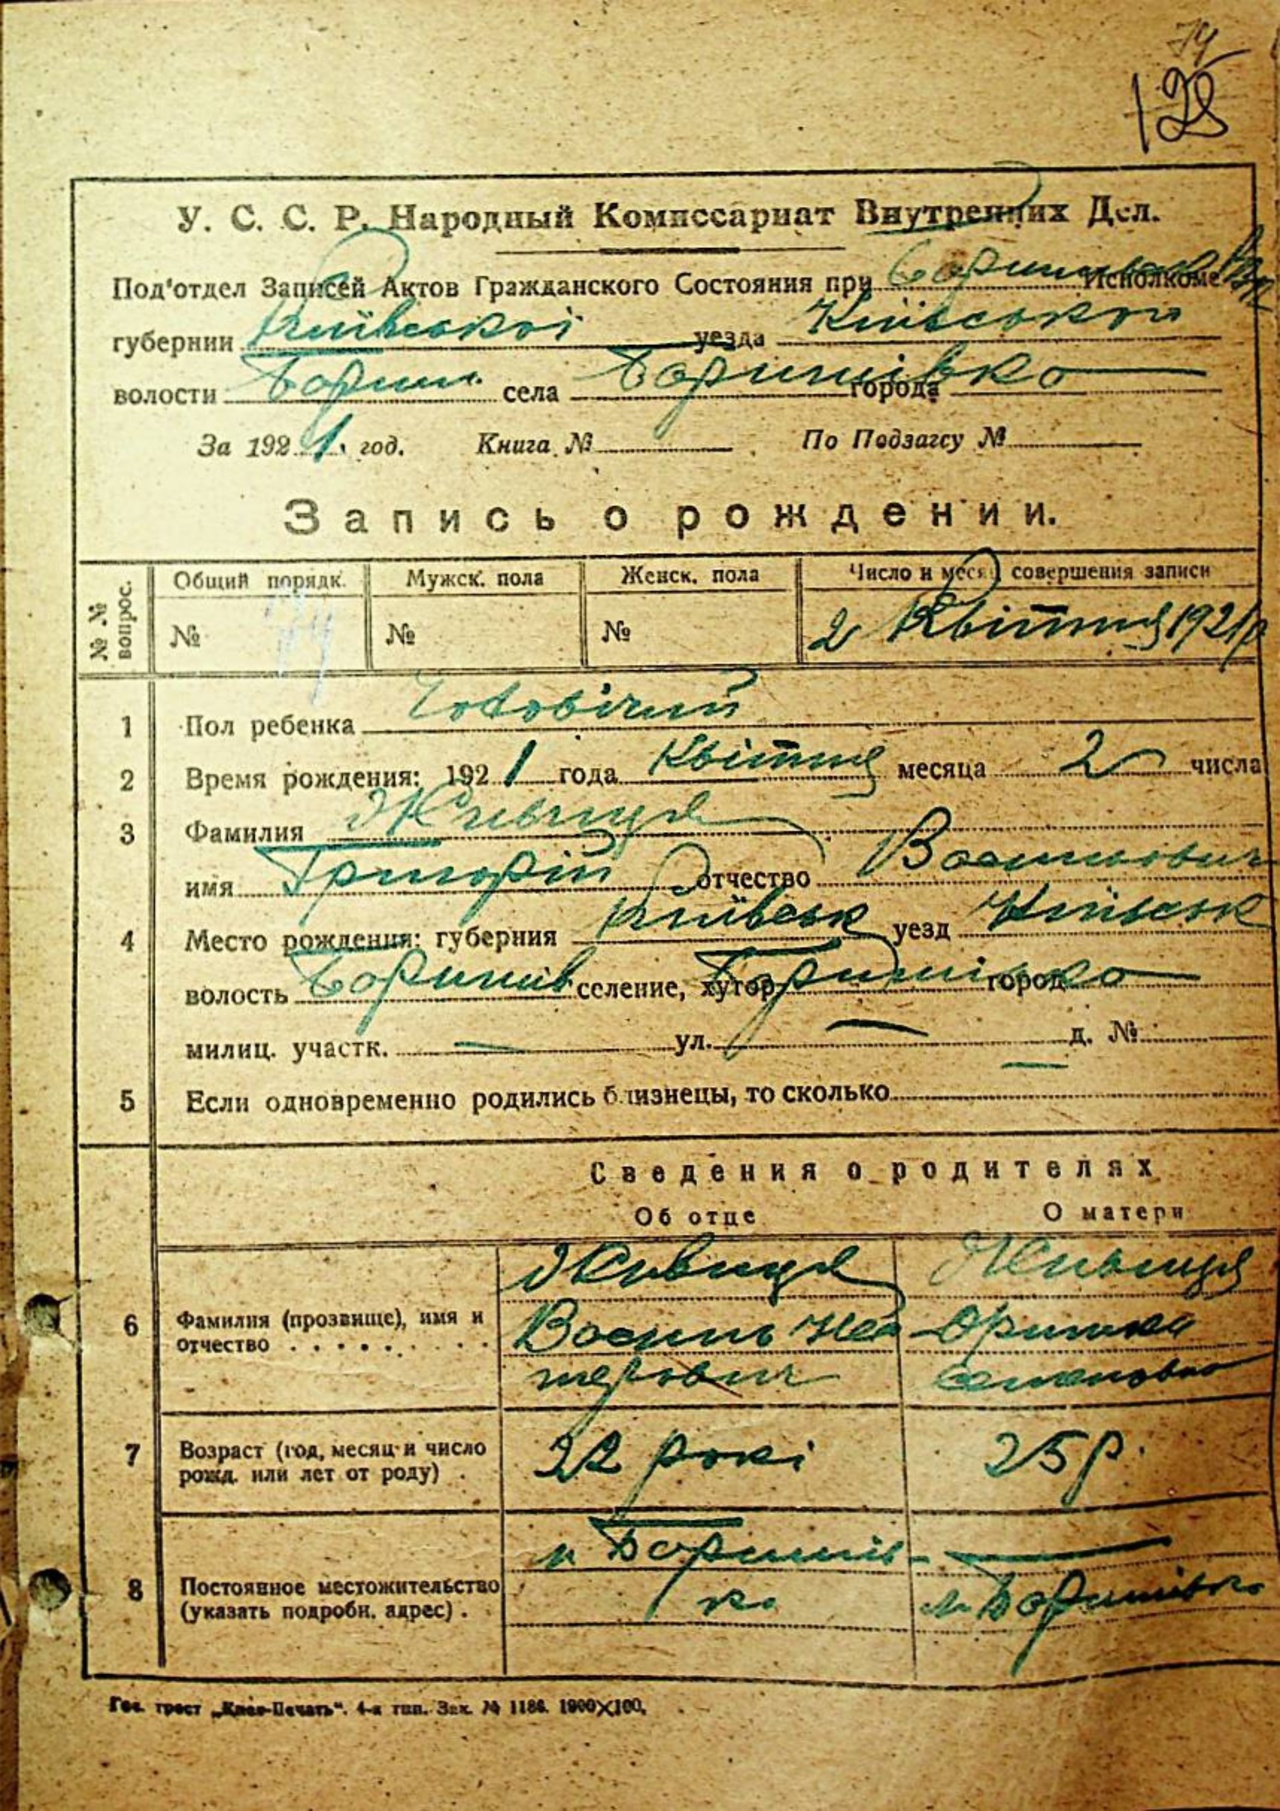 74
128
У. С. С. Р. Народный Комиссариат Внутренних Дел.
Под'отдел Записей Актов Гражданского Состояния при Исполкоме
губернии Київської уезда Київського
волости Бориш. села Боришівка города
За 1921. год. Книга № По Подзагсу №
Запись о рождении.
№№ вопрос. Общий порядк. Мужск. пола Женск. пола Число и месяц совершения записи
№ 74 № № 2 Квітня 1921 р
1 Пол ребенка Чоловічий
2 Время рождения: 1921 года Квітня месяца 2 числа
3 Фамилия
имя Григорій отчество Васильович
4 Место рождения: губерния Київськ уезд Київськ
волость Боришів селение, хутор Боришівка город
милиц. участк. — ул. — д. № —
5 Если одновременно родились близнецы, то сколько
Сведения о родителях
Об отце О матери
6 Фамилия (прозвище), имя и отчество
Василь Не- Оришка
терович Семеновна
7 Возраст (год, месяц и число рожд. или лет от роду) . 22 рокі 25 р.
8 Постоянное местожительство (указать подробн. адрес) . м. Боришів- м. Боришівка
ка
Гос. трест „Киев-Печать“. 4-я тип. Зак. № 1186. 1900×100.